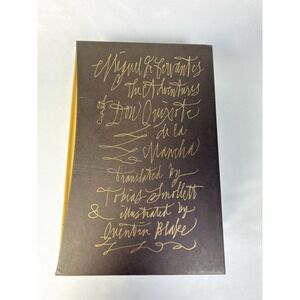 Miguel de Cervantes
The Adventures
of Don Quixote
de la
Mancha
translated by
Tobias Smollett
& illustrated by
Quentin Blake